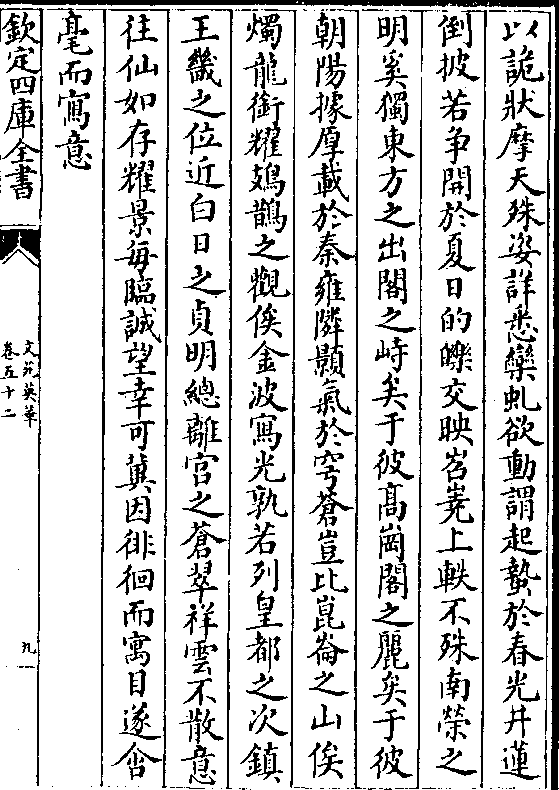 以詭狀摩天殊姿詳悉欒虬欲動謂起蟄於春光井蓮
倒披若争開於夏日的皪交映岧嶤上軼不殊南榮之
明奚獨東方之出閣之峙矣于彼高崗閣之麗矣于彼
朝陽據厚載於秦雍隣顥氣於穹蒼豈比崑崙之山俟
燭龍銜耀鳷鵲之觀俟金波寫光孰若列皇都之次鎮
王畿之位近白日之貞明總離宮之蒼翠祥雲不散意
往仙如存耀景每臨誠望幸可冀因徘徊而寓目遂含
毫而寫意
欽定四庫全書
文苑英華
卷五十二
九